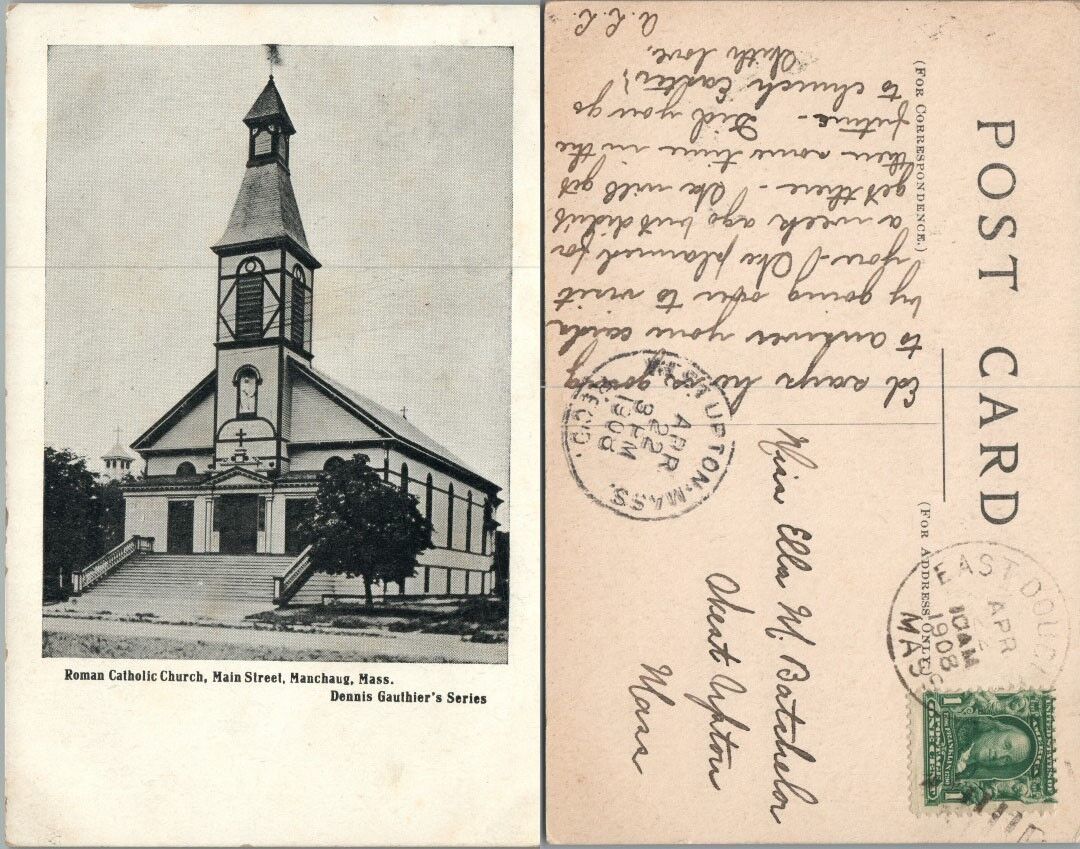 Roman Catholic Church, Main Street, Manchaug, Mass.
Dennis Gauthier's Series
POST CARD
(FOR CORRESPONDENCE.)
(FOR ADDRESS ONLY.)
Ed says he is going
to answer your cards
by going over to visit
you - We planned for
a week ago but didn't
get there - We will get
then some time in the
future - Did you go
to church Easter?
With love,
A. L. L.
Miss Ella M. Batchelor
West Upton
Mass
WEST UPTON, MASS.
APR
22
3 PM
1908
REC'D.
EAST DOUGLAS
APR
10 AM
1908
MASS.
1 1
ONE CENT